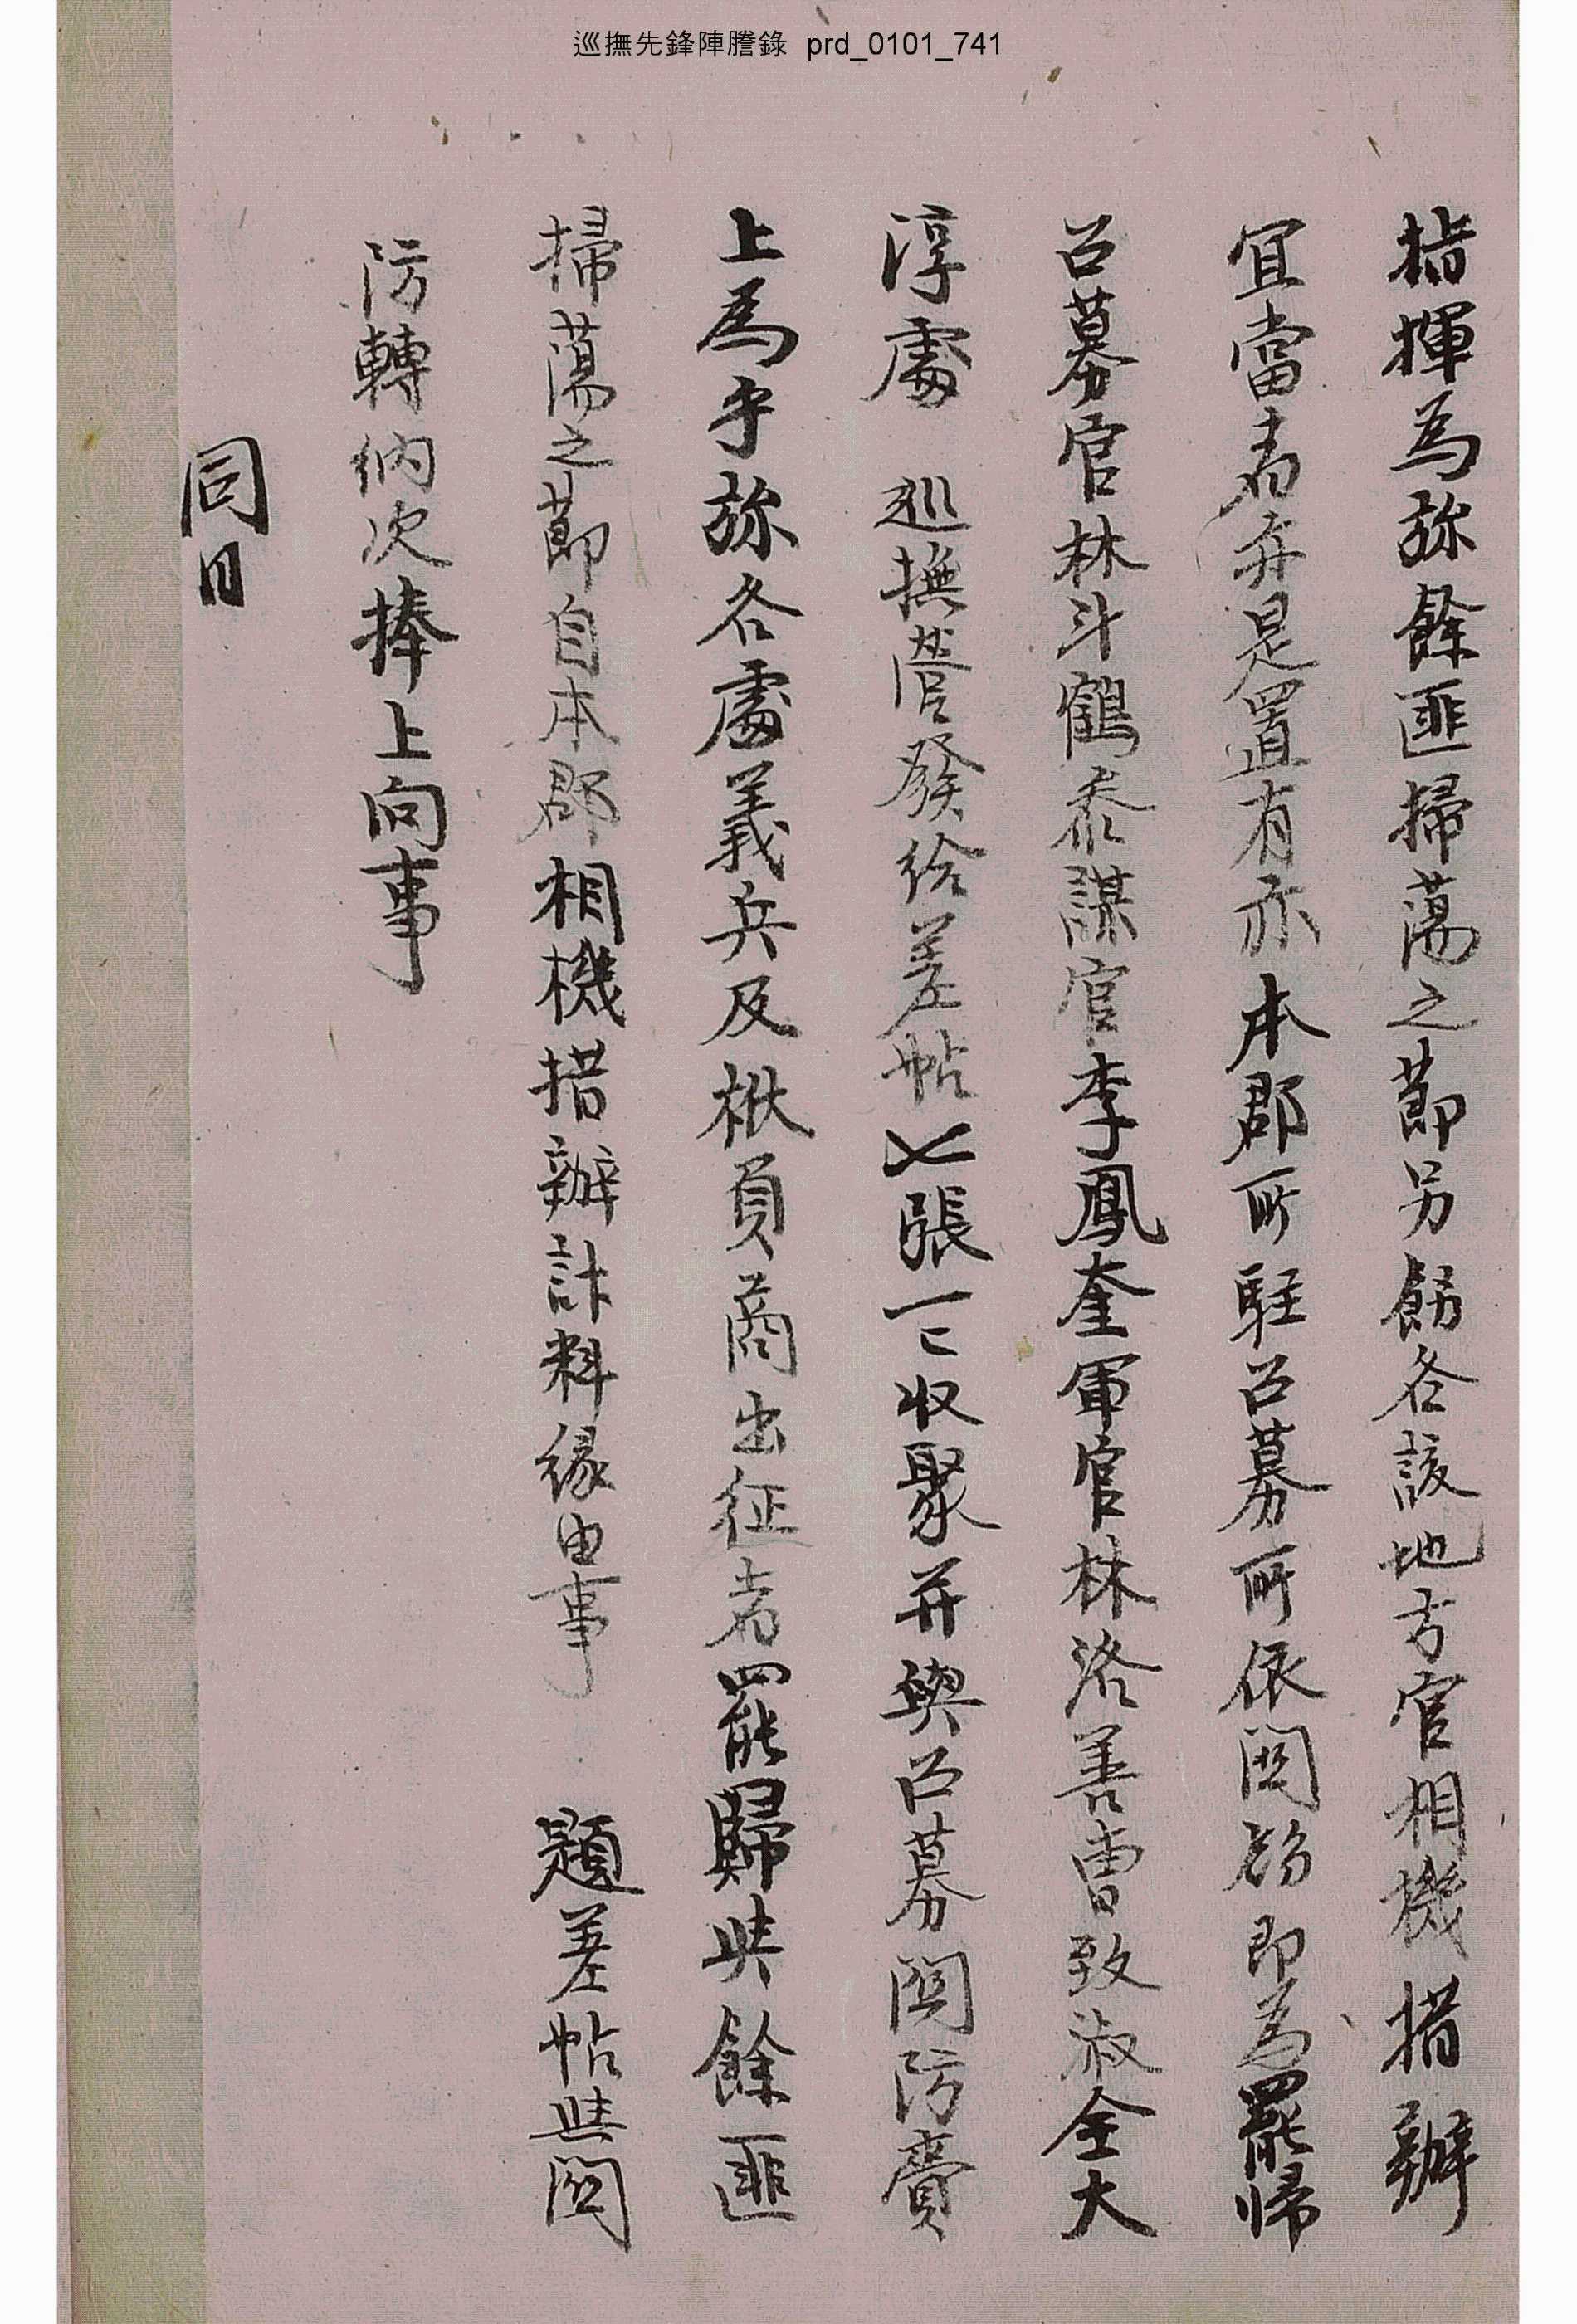 巡撫先鋒陣謄錄 prd_0101_741
指揮為旀餘匪掃蕩之節另飭各該地方官相機措辦
宜當者弁是置有亦本郡所駐召募所依関飭即為罷歸
召募官林斗鶴叅謀官李鳳奎軍官林洛善曺致淑全大
淳處 巡撫營發給差帖七張一〻收聚并與召募関防賫
上為乎旀各處義兵及楸負商出征者罷歸與餘匪
掃蕩之節自本郡相機措辦計料緣由事 題差帖與関
防轉納次捧上向事
同日